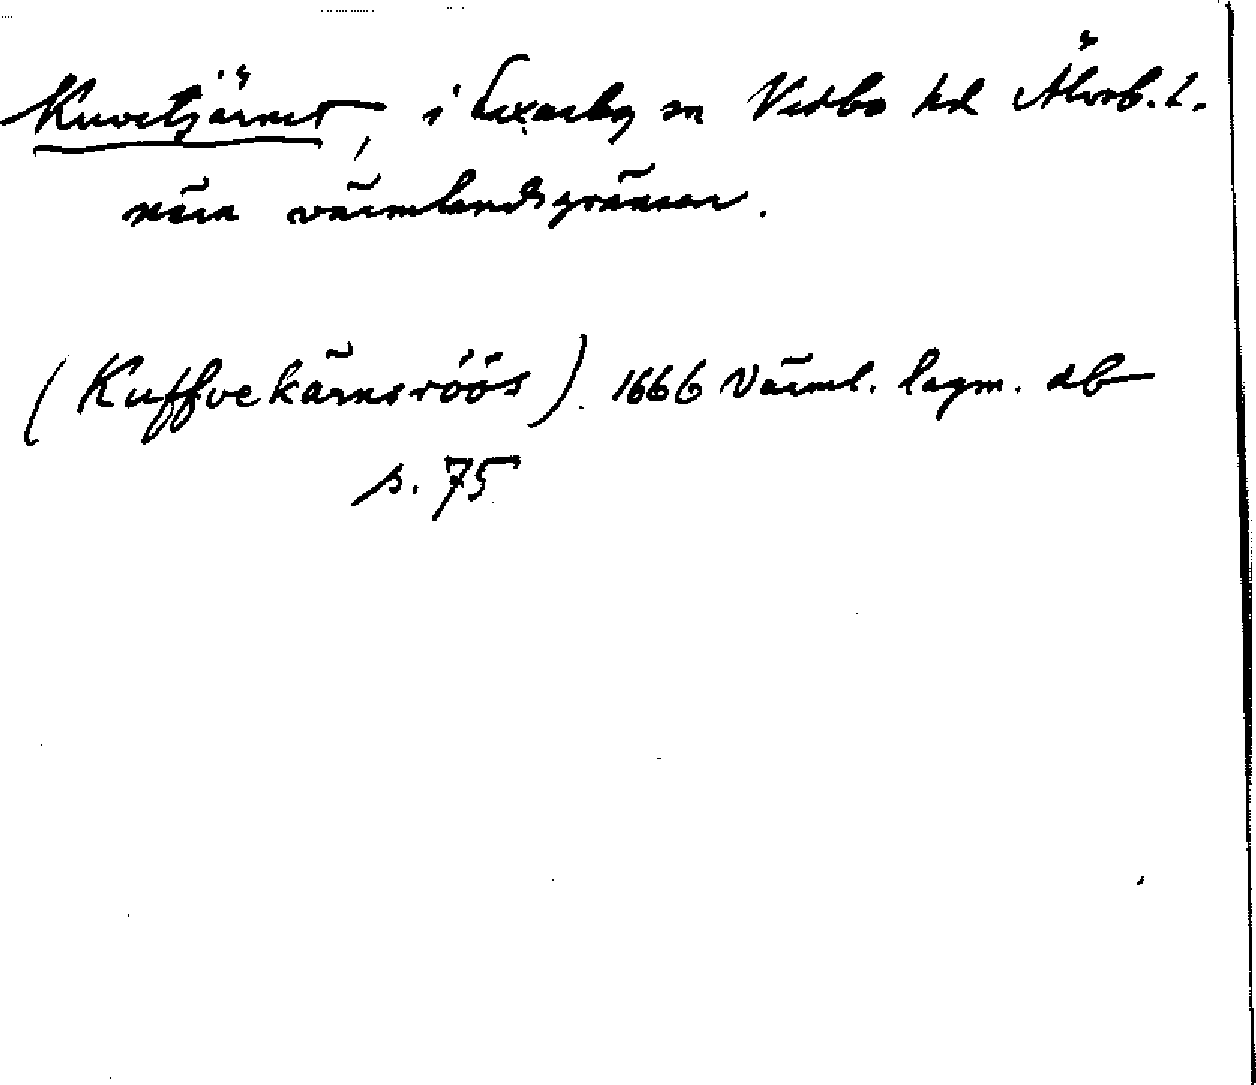 Kuvetjärnet, i Laxarby sn Vedbo hd Älvsb. l.
nära värmlandsgränsen.
(Kuffvekärnsröös) 1666 Värml. lagm. db
s. 75